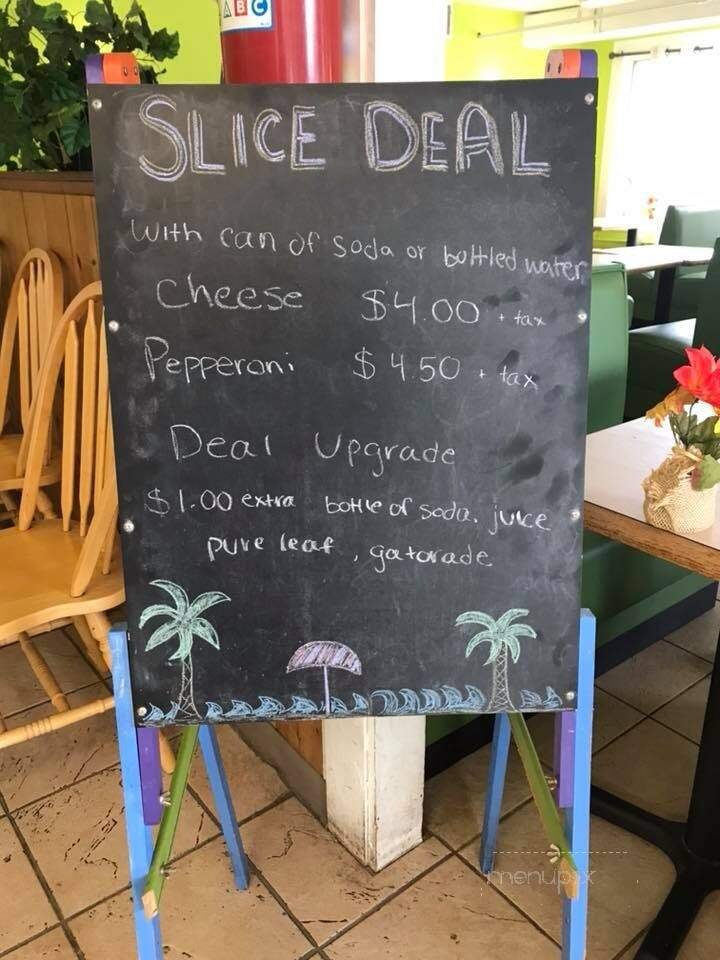 ABC
SLICE DEAL
With can of soda or bottled water
Cheese $4.00 + tax
Pepperoni $4.50 + tax
Deal Upgrade
$1.00 extra bottle of soda, juice
pure leaf, gatorade
menupix